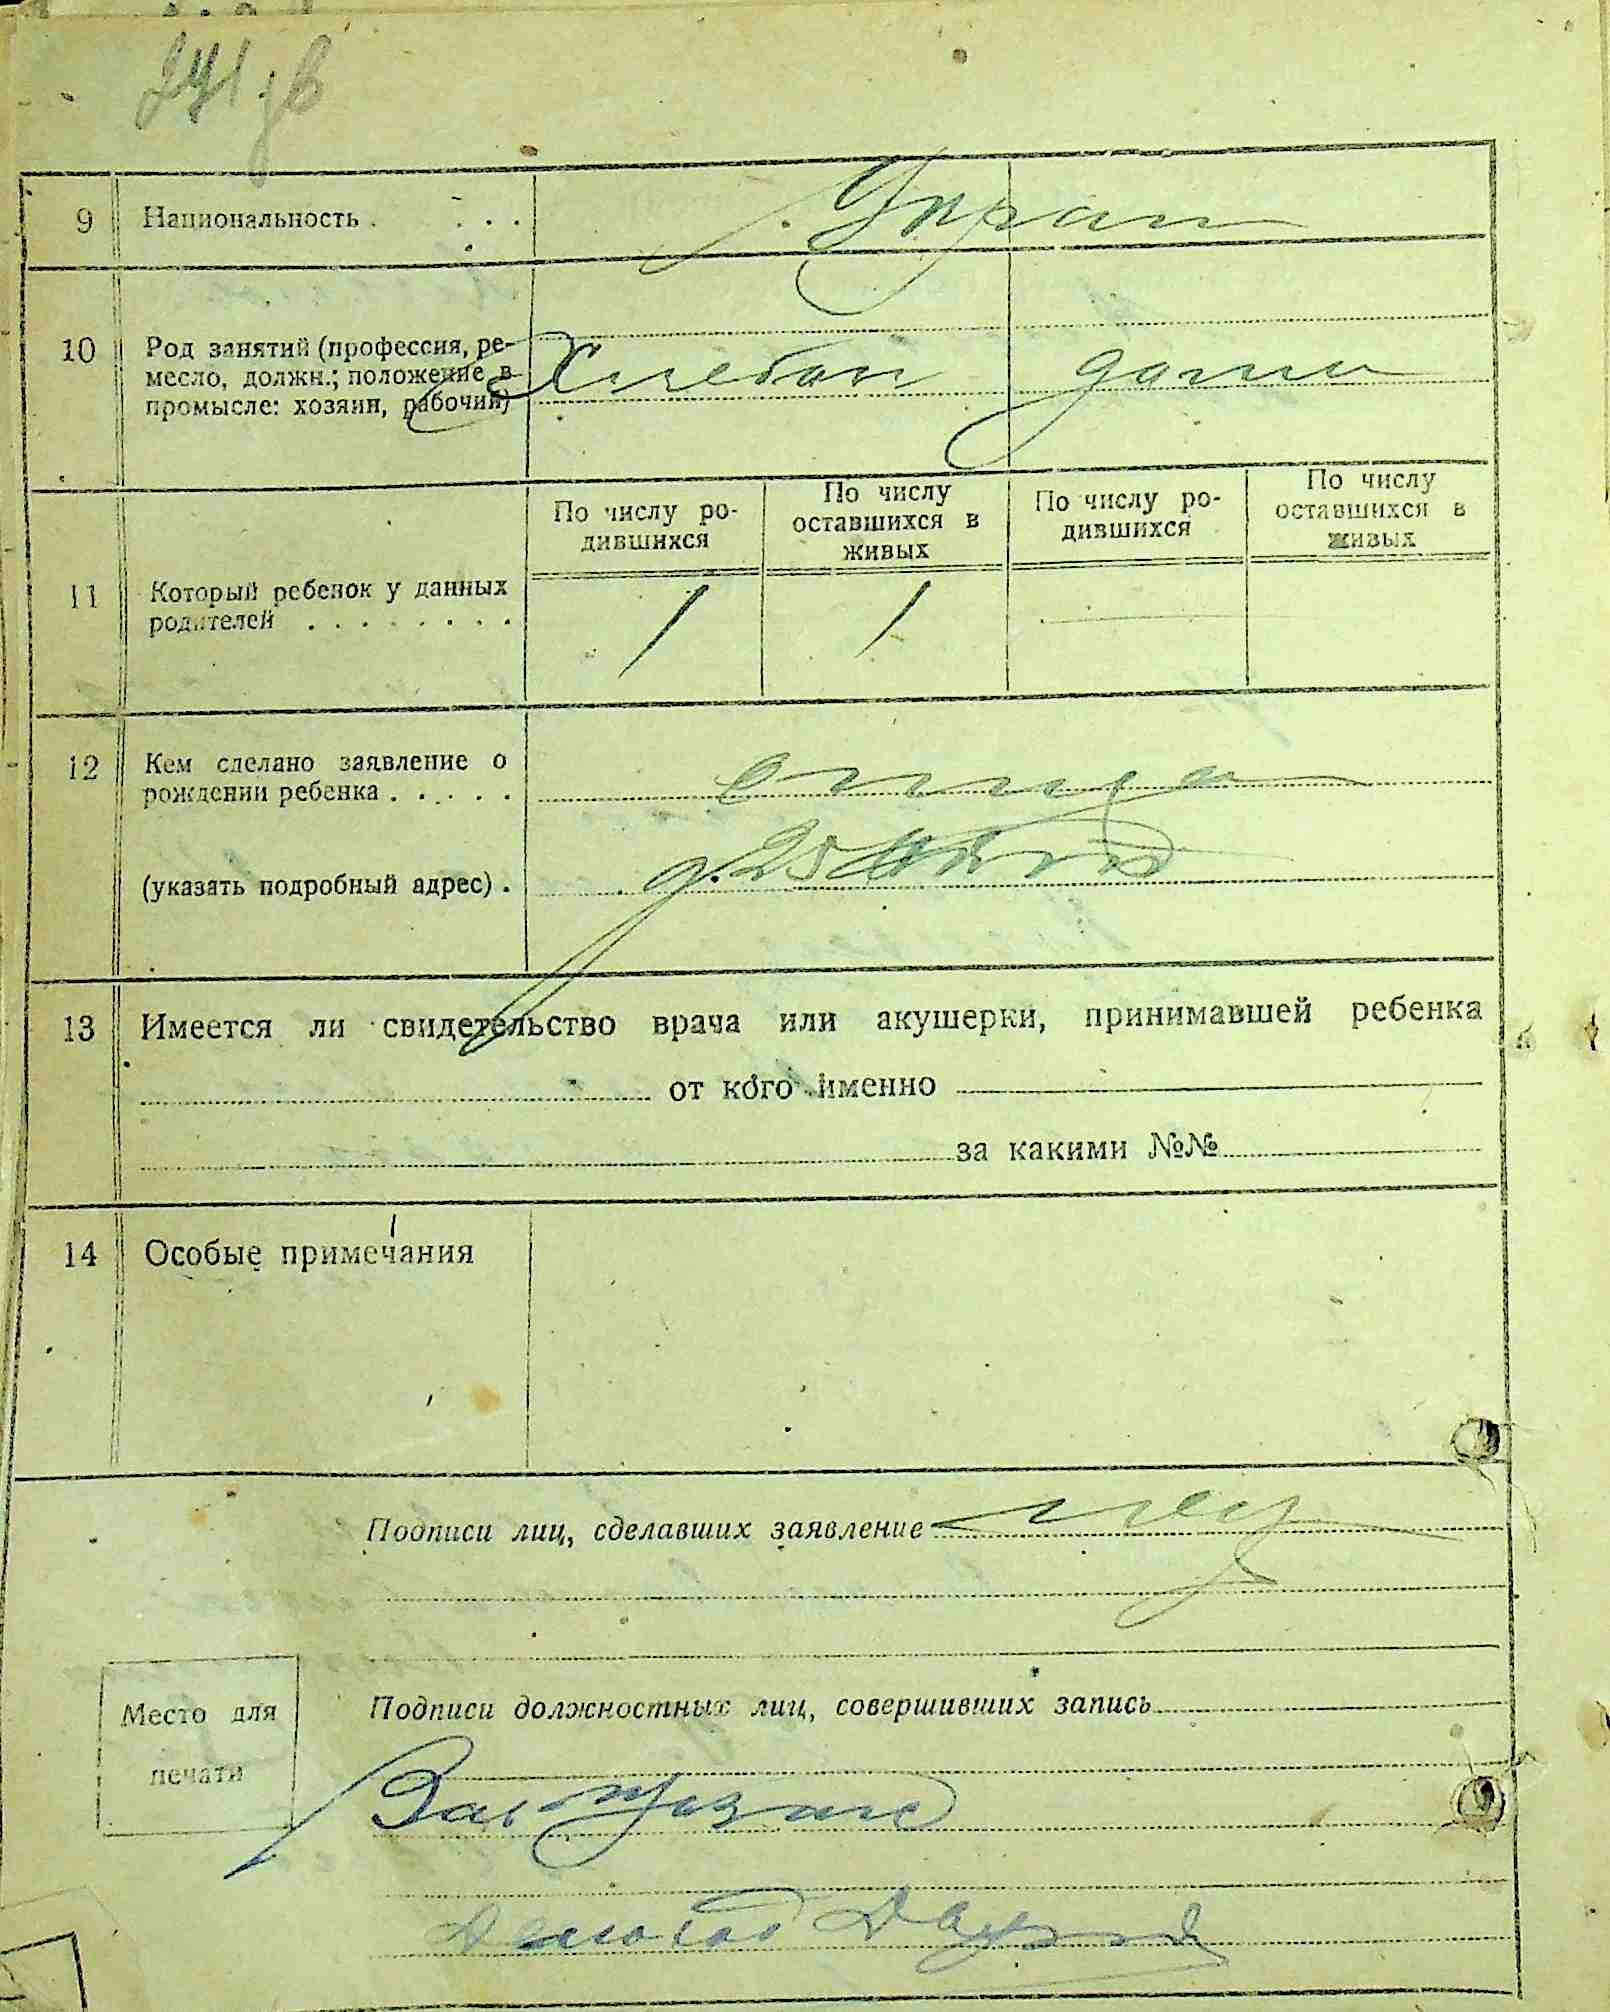 241
9 Национальность . . . . Украин
10 Род занятий (профессия, ре-
месло, должн.; положение в
промысле: хозяин, рабочий)
Хлебоп дома
По числу ро-
дившихся
По числу
оставшихся в
живых
По числу ро-
дившихся
По числу
оставшихся в
живых
11 Который ребенок у данных
родителей . . . . . . . .
1 1 —
12 Кем сделано заявление о
рождении ребенка . . . . .
отца
(указать подробный адрес) .
13 Имеется ли свидетельство врача или акушерки, принимавшей ребенка
от кого именно
за какими №№
14 Особые примечания
Подписи лиц, сделавших заявление
Место для
печати
Подписи должностных лиц, совершивших запись